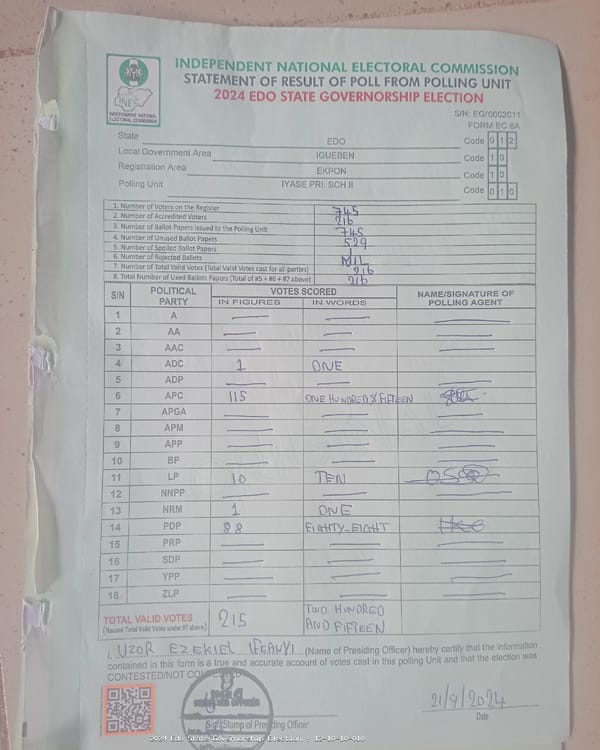 INDEPENDENT NATIONAL ELECTORAL COMMISSION
STATEMENT OF RESULT OF POLL FROM POLLING UNIT
2024 EDO STATE GOVERNORSHIP ELECTION
INEC
INDEPENDENT NATIONAL
ELECTORAL COMMISSION
S/N: EG/0002011
FORM EC 8A
State EDO Code 0 1 2
Local Government Area IGUEBEN Code 1 0
Registration Area EKPON Code 1 0
Polling Unit IYASE PRI. SCH II Code 0 1 0
1. Number of Voters on the Register 745
2. Number of Accredited Voters 216
3. Number of Ballot Papers issued to the Polling Unit 745
4. Number of Unused Ballot Papers 529
5. Number of Spoiled Ballot Papers 1
6. Number of Rejected Ballots NIL
7. Number of Total Valid Votes (Total Valid Votes cast for all parties) 216
8. Total Number of Used Ballot Papers (Total of #5 + #6 + #7 above) 216
S/N POLITICAL PARTY VOTES SCORED IN FIGURES IN WORDS NAME/SIGNATURE OF POLLING AGENT
1 A
2 AA
3 AAC
4 ADC 1 ONE
5 ADP
6 APC 115 ONE HUNDRED & FIFTEEN
7 APGA
8 APM
9 APP
10 BP
11 LP 10 TEN
12 NNPP
13 NRM 1 ONE
14 PDP 88 EIGHTY-EIGHT
15 PRP
16 SDP
17 YPP
18 ZLP
TOTAL VALID VOTES 215 TWO HUNDRED
(Record Total Valid Votes under #7 above) AND FIFTEEN
I, UZOR EZEKIEL IFEANYI (Name of Presiding Officer) hereby certify that the information
contained in this form is a true and accurate account of votes cast in this polling Unit and that the election was
CONTESTED/NOT CONTESTED
21/9/2024
Sign/Stamp of Presiding Officer Date
2024 Edo State Governorship Election - 12-10-10-010